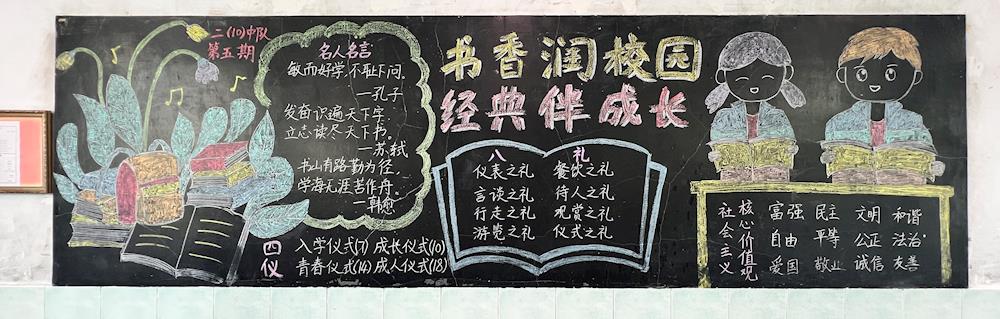 二(10)中队
第五期
名人名言
敏而好学,不耻下问。
—孔子
发奋识遍天下字,
立志读尽天下书。
—苏轼
书山有路勤为径,
学海无涯苦作舟。
—韩愈
四仪
入学仪式(7) 成长仪式(10)
青春仪式(14) 成人仪式(18)
书香润校园
经典伴成长
八 礼
仪表之礼 餐饮之礼
言谈之礼 待人之礼
行走之礼 观赏之礼
游览之礼 仪式之礼
社会主义
核心价值观
富强 民主 文明 和谐
自由 平等 公正 法治
爱国 敬业 诚信 友善